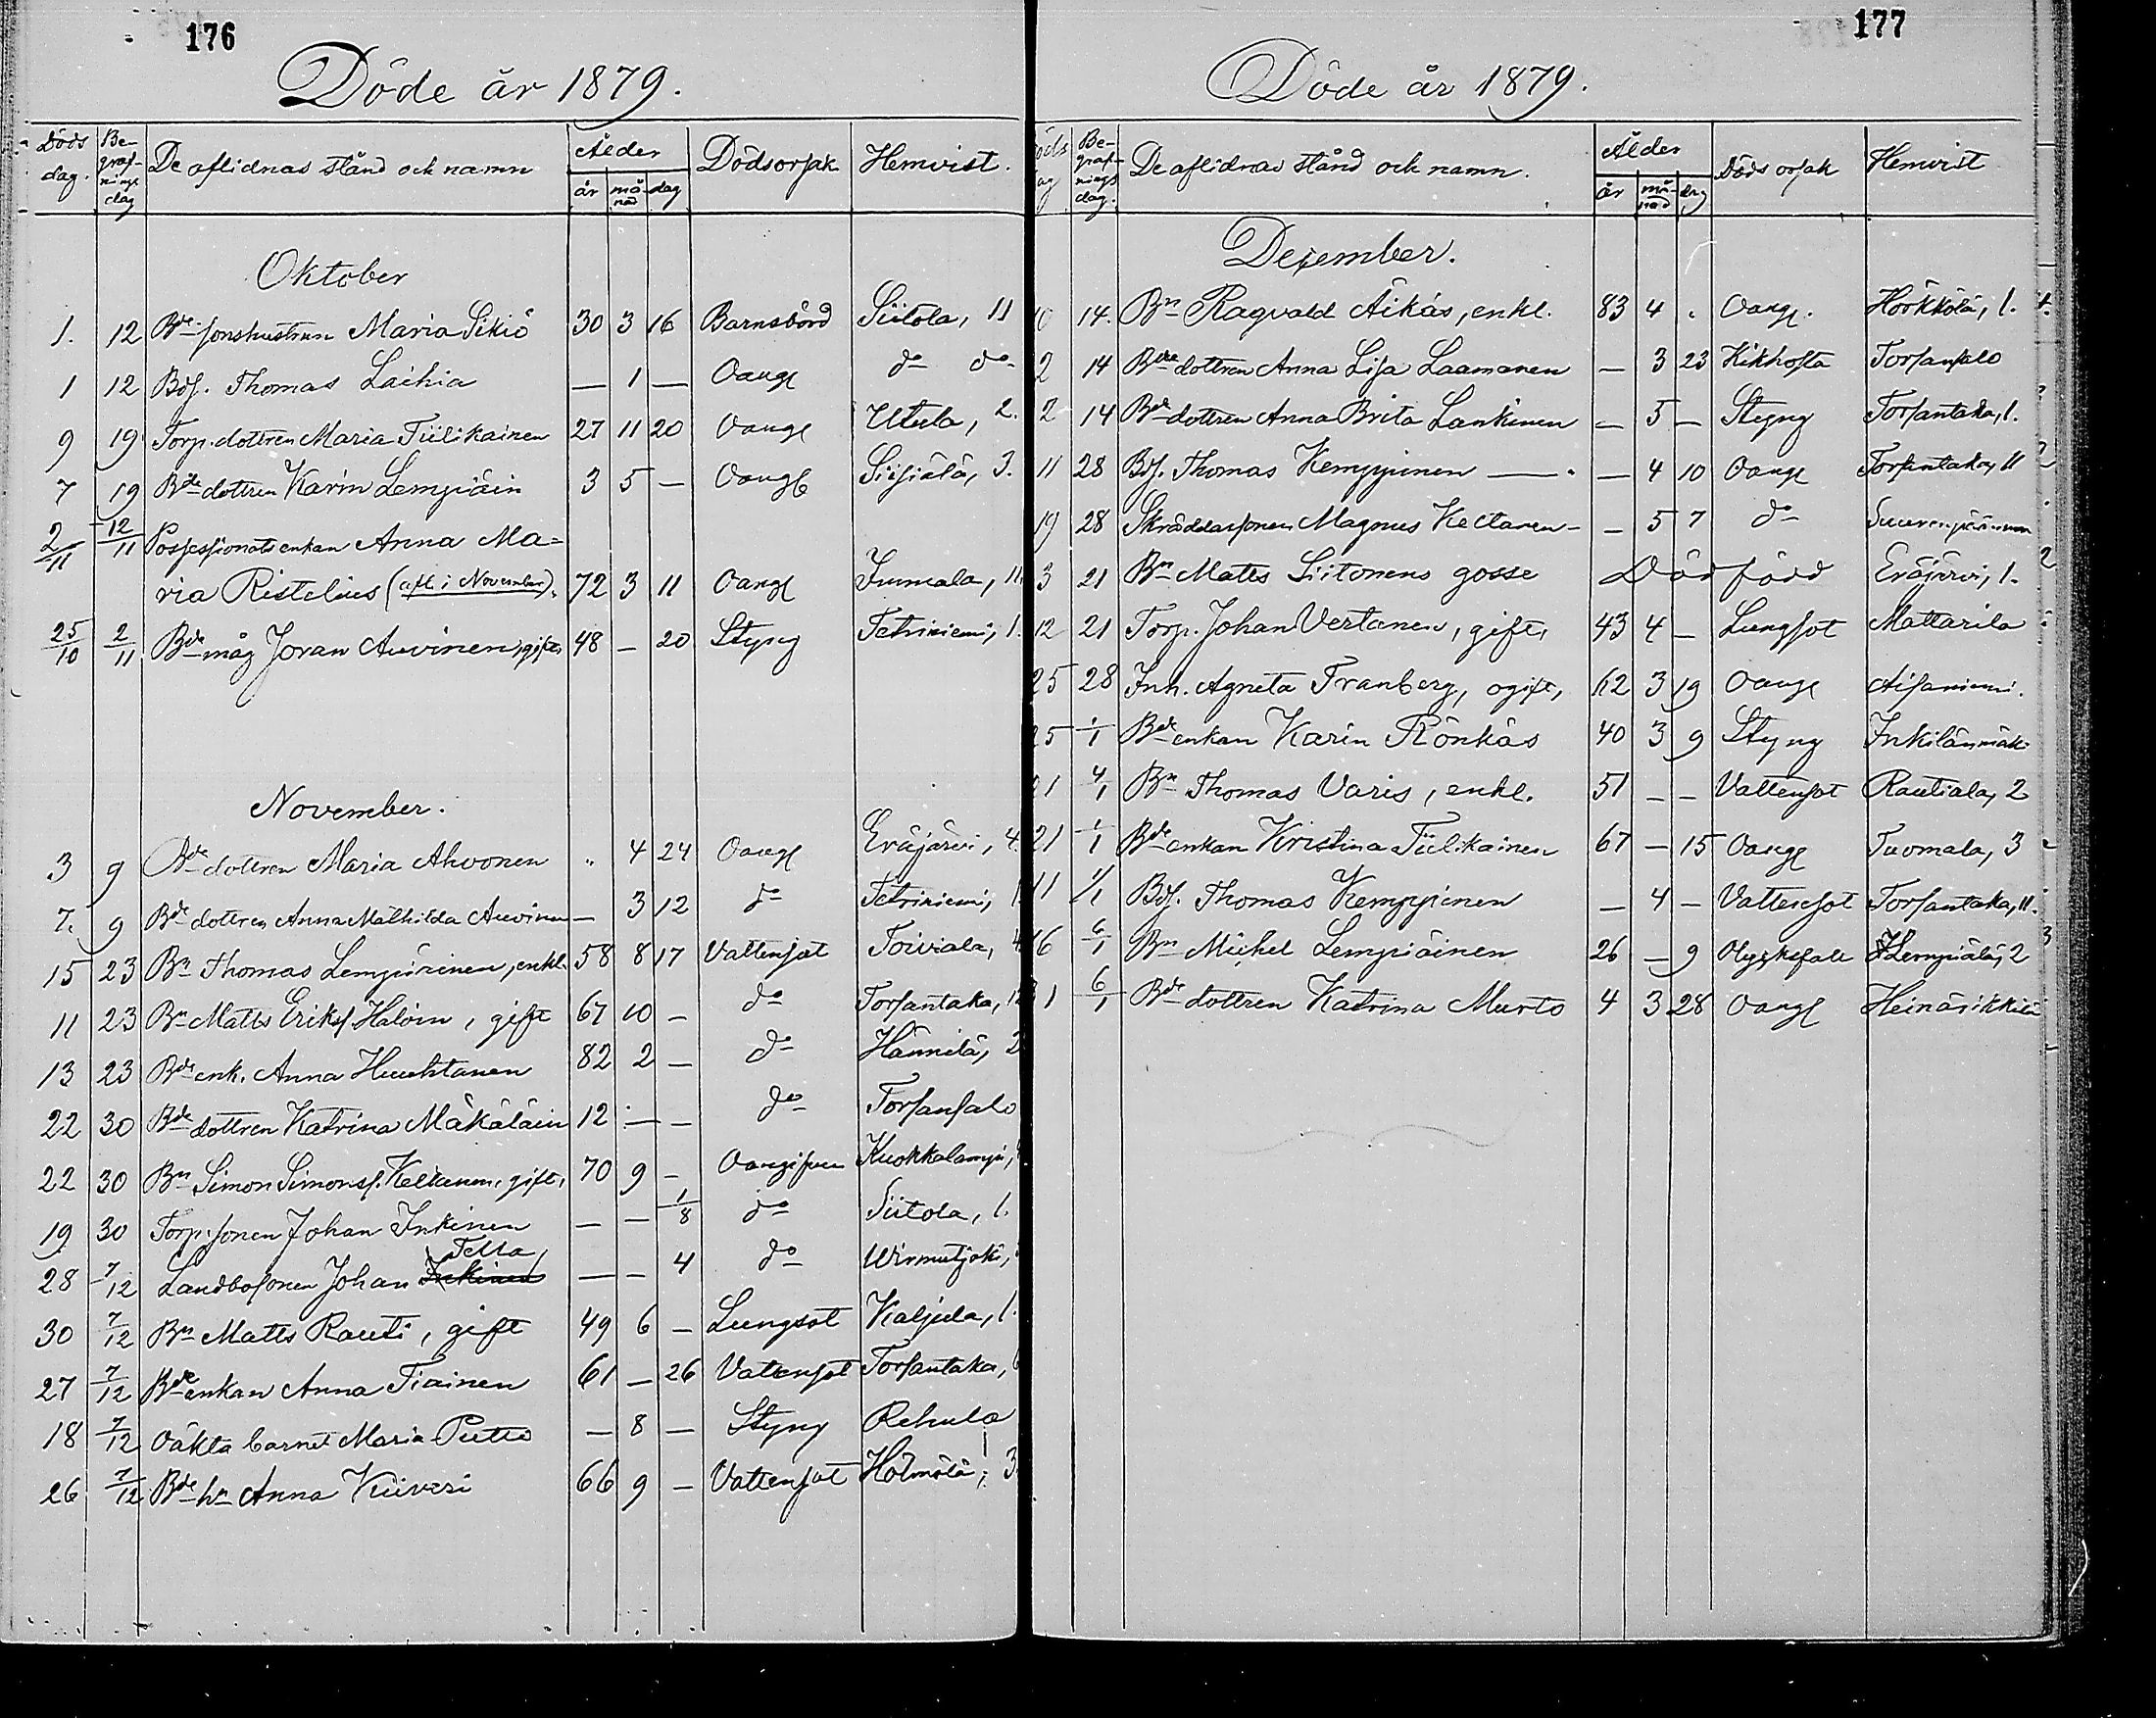 176
Döde år 1879.
Döds dag. Begrafnings dag De aflidnas stånd och namn Ålder år månad dag Dödsorsak Hemvist.
Oktober
1. 12 Bde sonhustrun Maria Sikiö 30 3 16 Barnsbörd Siitola, 11
1 12 Bds. Thomas Laihia — 1 — Oangf do do
9 19 Torp. dottren Maria Tiilikainen 27 11 20 Oangf Utula, 2.
7 19 Bde dottren Karin Lempiäin 3 5 — Oangf Siisiälä, 3.
2/11 12/11 Possessionats enkan Anna Ma=
ria Ristelius (afl. i November). 72 3 11 Oangf Immala, 11.
25/10 2/11 Bde måg Joran Auvinen, gift, 48 — 20 Styng Tetriniemi, 1.
November.
3 9 Bde dottren Maria Ahvonen " 4 24 Oangf Eräjärvi, 4.
7. 9 Bde dottren Anna Mathilda Auvinen — 3 12 do Tetriniemi, 1
15 23 Bn Thomas Lempiäinen, enkl. 58 8 17 Vattensot Toiviala, 4
11 23 Bn Matts Eriks. Haloin, gift 67 10 — do Torsantaka, 12
13 23 Bde enk. Anna Huuhtanen 82 2 — do Hännilä, 2
22 30 Bde dottren Katrina Mäkäläin 12 — — do Torsansalo
22 30 Bn Simon Simons. Keltanen, gift, 70 9 — Oangifven Kuokkalampi,
19 30 Torp. sonen Johan Inkinen — — 1/8 do Siitola, 1.
Tella
28 7/12 Landbosonen Johan Inkinen — — 4 do Wirmutjoki,
30 7/12 Bn Matts Rauti, gift 49 6 — Lungsot Kaljula, 1.
27 7/12 Bde enkan Anna Tiainen 61 — 26 Vattensot Torsantaka, 6
18 7/12 Oäkta barnet Maria Putto — 8 — Styng Rehula
26 7/12 Bde hu Anna Kiiveri 66 9 — Vattensot Holmälä, 3.
177
Döde år 1879.
Döds dag Begrafnings dag. De aflidnas stånd och namn. Ålder år månad dag Döds orsak Hemvist
December.
10 14. Bn Ragvald Äikäs, enkl. 83 4 . Oangf. Hörkkölä, 1.
2 14 Bde dottren Anna Lisa Laamanen — 3 23 Kikhosta Torsansalo
2 14 Bde dottren Anna Brita Lankinen — 5 — Styng Torsantaka, 1.
11 28 Bds. Thomas Kemppinen — 4 10 Oangf Torsantaka, 11
19 28 Skräddarsonen Magnus Keltanen — 5 7 do
3 21 Bn Matts Siitonens gosse Dödfödd Eräjärvi, 1.
12 21 Torp. Johan Vertanen, gift, 43 4 — Lungsot Mattarila
25 28 Inh. Agneta Tranberg, ogift, 62 3 19 Oangf Aisaniemi.
25 1/1 Bde enkan Karin Rönkäs 40 3 9 Styng Inkilänmäk.
21 4/1 Bn Thomas Varis, enkl. 51 — — Vattensot Rautiala, 2
21 1/1 Bde enkan Kristina Tiilikainen 67 — 15 Oangf Tuomala, 3
11 1/1 Bds. Thomas Kemppinen — 4 — Vattensot Torsantaka, 11.
16 6/1 Bn Mickel Lempiäinen 26 — 9 Olycksfall Lempiälä, 2
31 6/1 Bde dottren Katrina Murto 4 3 28 Oangf Heinärikkilä